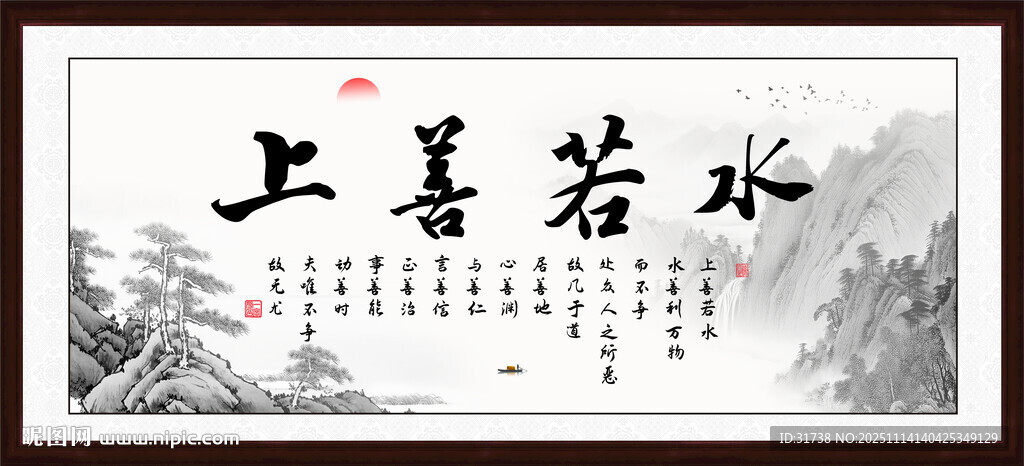 上善若水
上善若水
水善利万物
而不争
处众人之所恶
故几于道
居善地
心善渊
与善仁
言善信
正善治
事善能
动善时
夫唯不争
故无尤
昵图网 www.nipic.com
ID:31738 NO:20251114140425349129